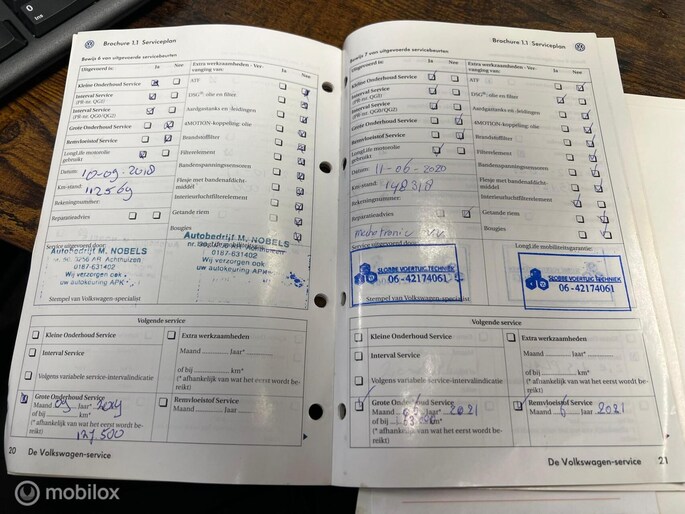 Brochure 1.1 Serviceplan
Bewijs 6 van uitgevoerde servicebeurten
Uitgevoerd is: Ja Nee
Extra werkzaamheden - Ver-
vanging van: Ja Nee
Kleine Onderhoud Service
ATF
Interval Service
(PR-nr. QG1)
DSG®: olie en filter
Interval Service
(PR-nr. QG0/QG2)
Aardgastanks en -leidingen
Grote Onderhoud Service
4MOTION-koppeling: olie
Remvloeistof Service
Brandstoffilter
LongLife motorolie
gebruikt
Filterelement
Datum: 10-09-2018
Bandenspanningssensoren
Km-stand: 112569
Flesje met bandenafdicht-
middel
Rekeningnummer:
Interieurluchtfilterelement
Reparatieadvies
Getande riem
Bougies
Service uitgevoerd door:
Autobedrijf M. NOBELS
0187-631402
Wij verzorgen ook
uw autokeuring APK
Autobedrijf M. NOBELS
0187-631402
Wij verzorgen ook
uw autokeuring APK
Stempel van Volkswagen-specialist
Volgende service
Kleine Onderhoud Service
Extra werkzaamheden
Maand Jaar*
Interval Service
of bij km*
Volgens variabele service-intervalindicatie
(* afhankelijk van wat het eerst wordt be-
reikt)
Grote Onderhoud Service
Maand 09 Jaar* 2019
of bij km*
(* afhankelijk van wat het eerst wordt be-
reikt) 127.500
Remvloeistof Service
Maand Jaar
20 De Volkswagen-service
Brochure 1.1 Serviceplan
Bewijs 7 van uitgevoerde servicebeurten
Uitgevoerd is: Ja Nee
Extra werkzaamheden - Ver-
vanging van: Ja Nee
Kleine Onderhoud Service
ATF
Interval Service
(PR-nr. QG1)
DSG®: olie en filter
Interval Service
(PR-nr. QG0/QG2)
Aardgastanks en -leidingen
Grote Onderhoud Service
4MOTION-koppeling: olie
Remvloeistof Service
Brandstoffilter
LongLife motorolie
gebruikt
Filterelement
Datum: 11-06-2020
Bandenspanningssensoren
Km-stand: 148318
Flesje met bandenafdicht-
middel
Rekeningnummer:
Interieurluchtfilterelement
Reparatieadvies
Getande riem
Mechatronic
Bougies
Service uitgevoerd door:
LongLife mobiliteitsgarantie:
SLOBBE VOERTUIG TECHNIEK
06-42174061
SLOBBE VOERTUIG TECHNIEK
06-42174061
Stempel van Volkswagen-specialist
Volgende service
Kleine Onderhoud Service
Extra werkzaamheden
Maand Jaar*
Interval Service
of bij km*
Volgens variabele service-intervalindicatie
(* afhankelijk van wat het eerst wordt be-
reikt)
Grote Onderhoud Service
Maand Jaar* 2021
of bij km*
(* afhankelijk van wat het eerst wordt be-
reikt)
Remvloeistof Service
Maand 6 Jaar 2021
De Volkswagen-service 21
mobilox